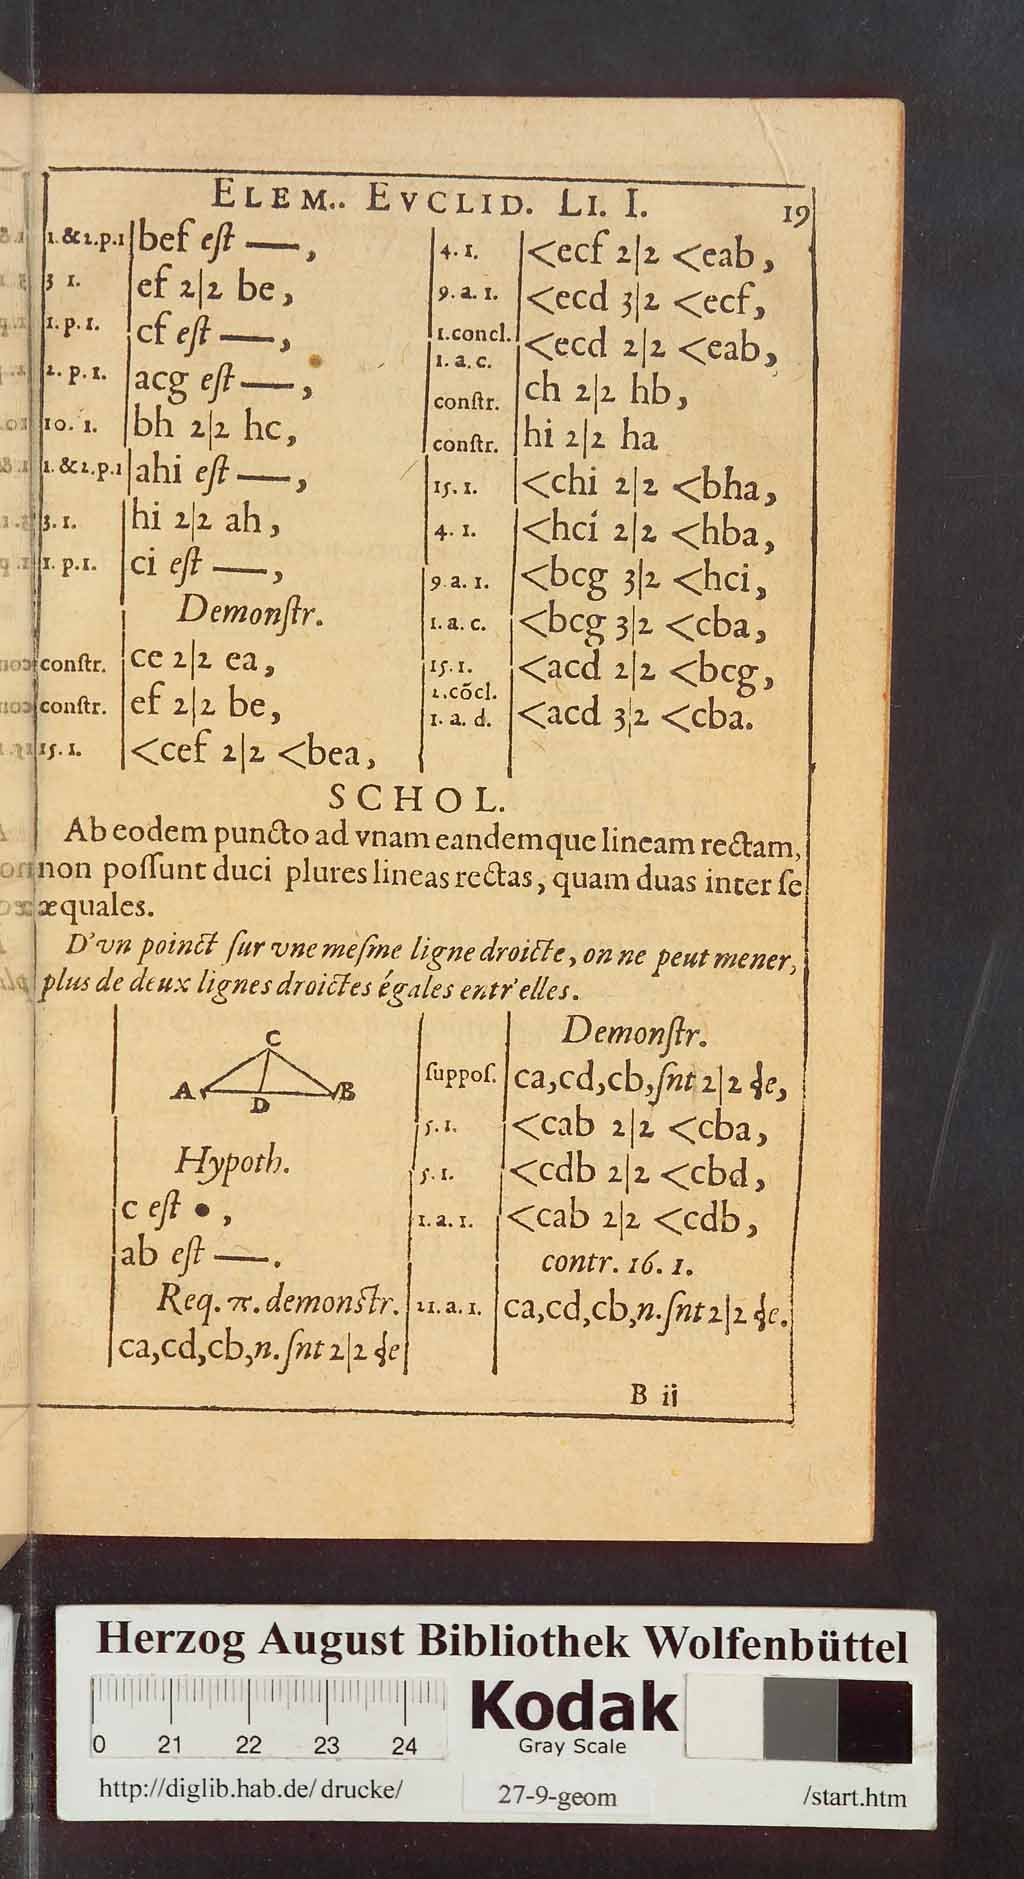 ELEM.. EVCLID. LI. I. 19
1.&2.p.1 bef eſt —,
3 1. ef 2|2 be,
1. p. 1. cf eſt —,
2. p. 1. acg eſt —,
10. 1. bh 2|2 hc,
1. &2.p.1 ahi eſt —,
3. 1. hi 2|2 ah,
1. p.1. ci eſt —,
Demonſtr.
conſtr. ce 2|2 ea,
conſtr. ef 2|2 be,
15. 1. <cef 2|2 <bea,
4. 1. <ecf 2|2 <eab,
9. a. 1. <ecd 3|2 <ecf,
1.concl.
1. a. c. <ecd 2|2 <eab,
conſtr. ch 2|2 hb,
conſtr. hi 2|2 ha
15. 1. <chi 2|2 <bha,
4. 1. <hci 2|2 <hba,
9. a. 1. <bcg 3|2 <hci,
1. a. c. <bcg 3|2 <cba,
15. 1. <acd 2|2 <bcg,
2.cōcl.
1. a. d. <acd 3|2 <cba.
SCHOL.
Ab eodem puncto ad vnam eandemque lineam rectam,
non poſſunt duci plures lineas rectas, quam duas inter ſe
æquales.
D'vn poinct ſur vne meſme ligne droicte, on ne peut mener,
plus de deux lignes droictes égales entr'elles.
C
A D B
Hypoth.
c eſt •,
ab eſt —.
Req. π. demonſtr.
ca,cd,cb,n. ſnt 2|2 ɖe
Demonſtr.
ſuppoſ. ca,cd,cb,ſnt 2|2 ɖe,
5. 1. <cab 2|2 <cba,
5. 1. <cdb 2|2 <cbd,
1. a. 1. <cab 2|2 <cdb,
contr. 16. 1.
21. a. 1. ca,cd,cb,n. ſnt 2|2 ɖe.
B ij
Herzog August Bibliothek Wolfenbüttel
0 21 22 23 24
Kodak
Gray Scale
http://diglib.hab.de/ drucke/ 27-9-geom /start.htm